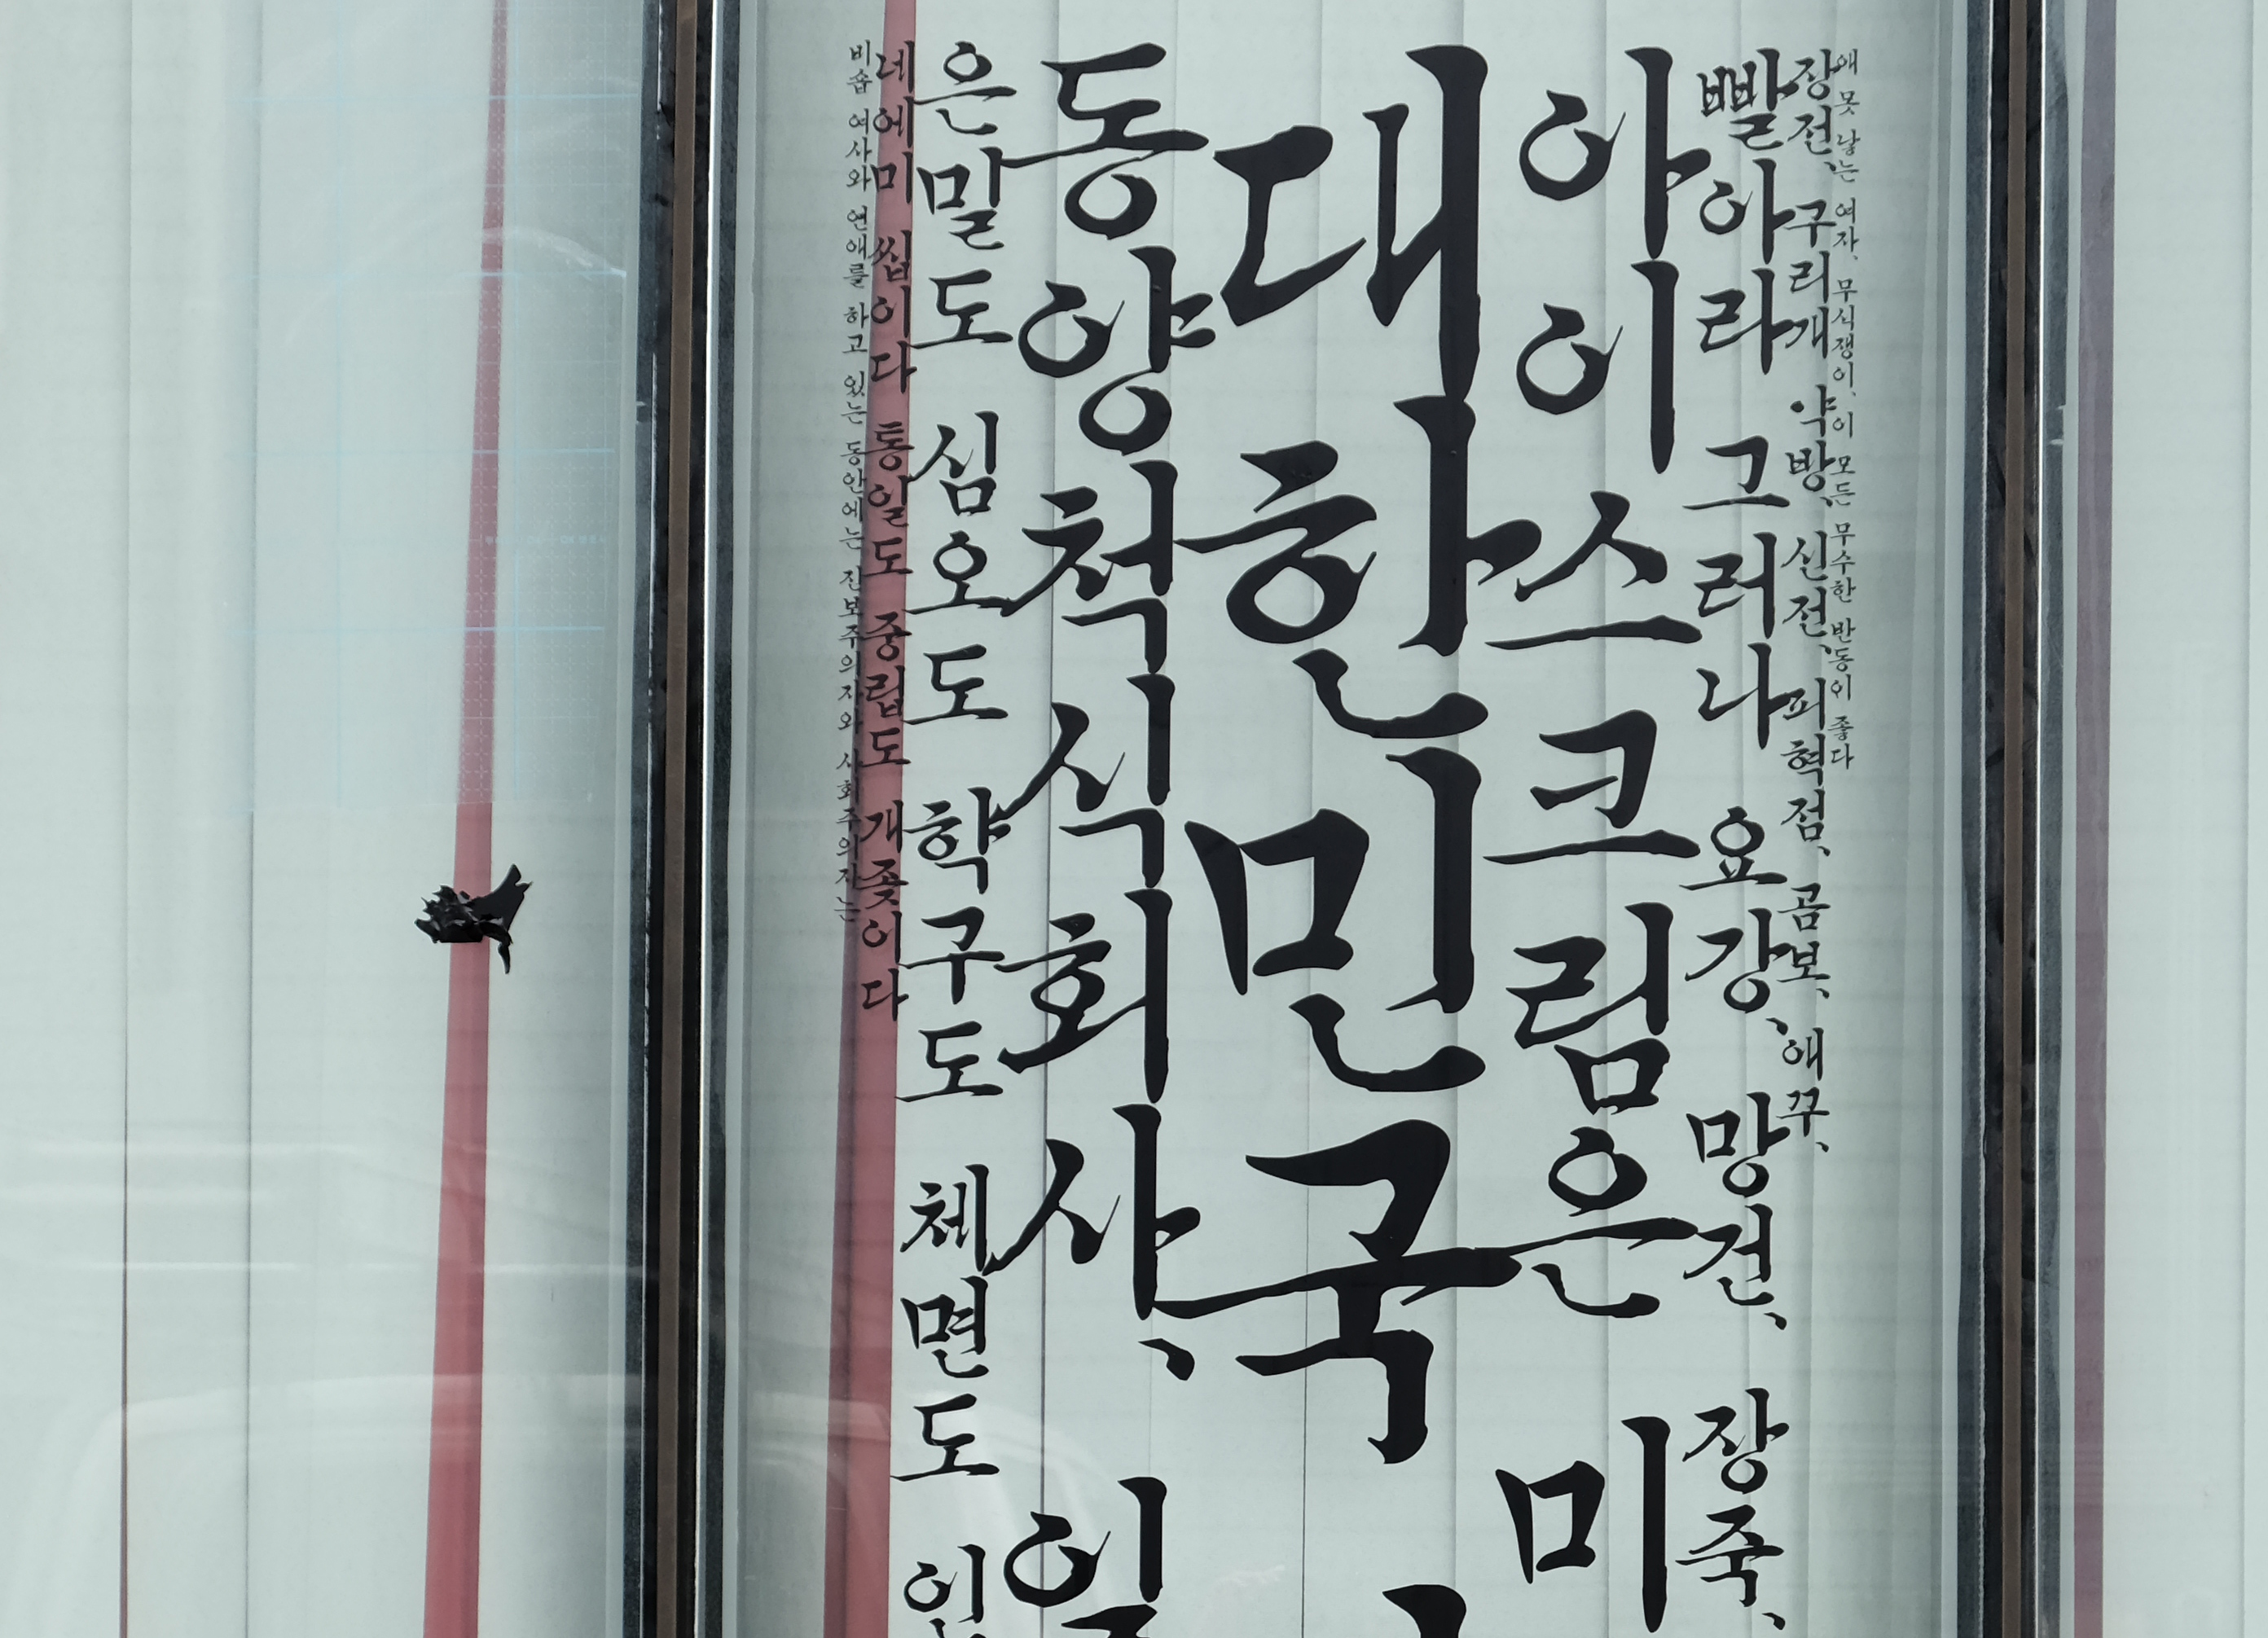 비숍 여사와 연애를 하고 있는 동안에는 진보주의자와 사회주의자는
네에미 씹이다 통일도 중립도 개좆이다
은밀도 심오도 학구도 체면도
동양척식회사,
대한민국
아이스크림은 미
빨아라 그러나 요강, 망건, 장죽,
장전, 구리개 약방, 신전, 피혁점, 곰보, 애꾸,
애 못 낳는 여자, 무식쟁이, 이 모든 무수한 반동이 좋다